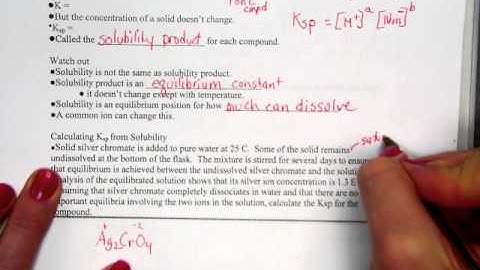 •K =
ionic
cmpd
•But the concentration of a solid doesn't change.
•Ksp =
Ksp = [M⁺]ᵃ [Nm⁻]ᵇ
•Called the solubility product for each compound.
Watch out
•Solubility is not the same as solubility product.
•Solubility product is an equilibrium constant
• it doesn't change except with temperature.
•Solubility is an equilibrium position for how much can dissolve
•A common ion can change this.
Calculating Ksp from Solubility
•Solid silver chromate is added to pure water at 25 C. Some of the solid remains
undissolved at the bottom of the flask. The mixture is stirred for several days to ensure
that equilibrium is achieved between the undissolved silver chromate and the solution.
Analysis of the equilibrated solution shows that its silver ion concentration is 1.3 E
Assuming that silver chromate completely dissociates in water and that there are no
important equilibria involving the two ions in the solution, calculate the Ksp for the
compound.
+ -2
Ag₂CrO₄